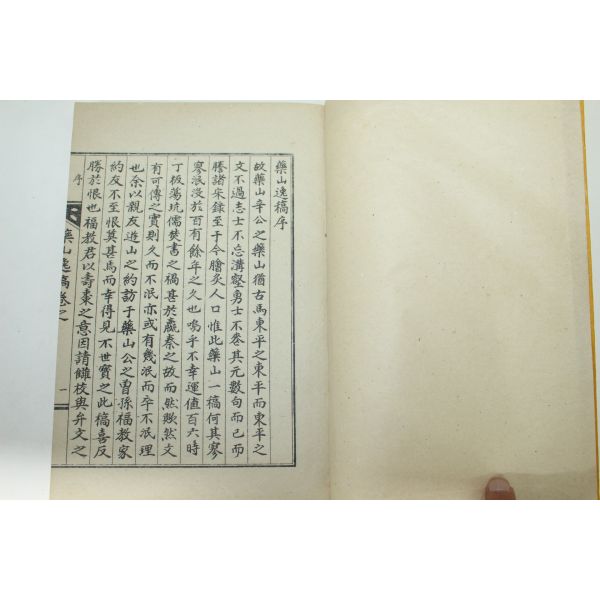 藥山逸稿序
故藥山辛公之藥山猶古馬東平之東平而東平之
文不過志士不忘溝壑勇士不忘其元數句而已而
謄諸宋錄至于今膾炙人口惟此藥山一稿何其寥
寥泯沒於百有餘年之久也嗚乎不幸運値百六時
丁板蕩坑儒焚書之禍甚於嬴秦之故而然歟然文
有可傳之實則久而不泯亦或有幾泯而卒不泯理
也余以親友造山之約訪于藥山公之曾孫福教家
約友不至恨莫甚焉而幸得見不世寶之此稿喜反
勝於恨也福教君以壽棗之意因請讎校與弁文之
序
藥山逸稿卷之
一